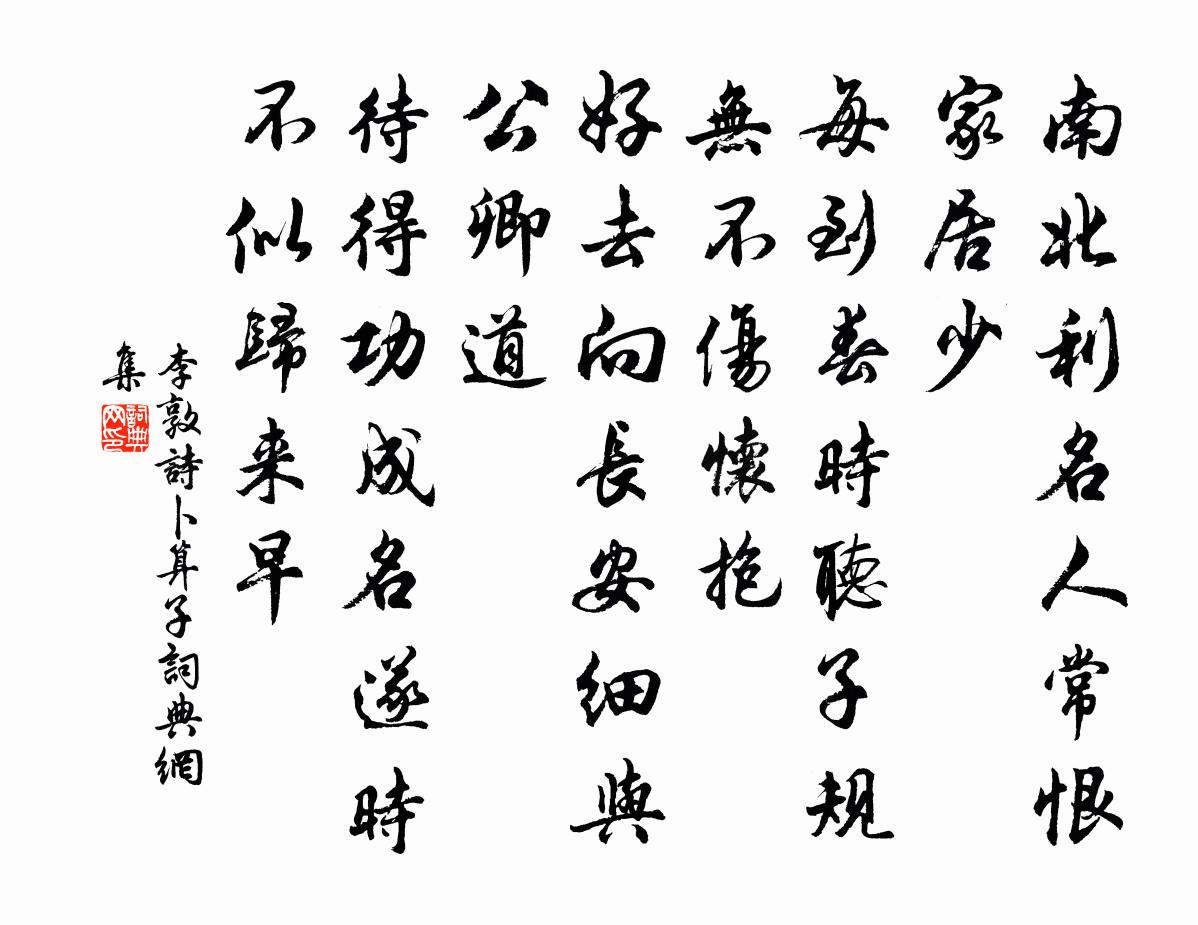 南北利名人常恨
家居少
每到春時聽子規
無不傷懷抱
好去向長安細與
公卿道
待得功成名遂時
不似歸来早
李敦詩卜算子詞典網
集
詞典
网印